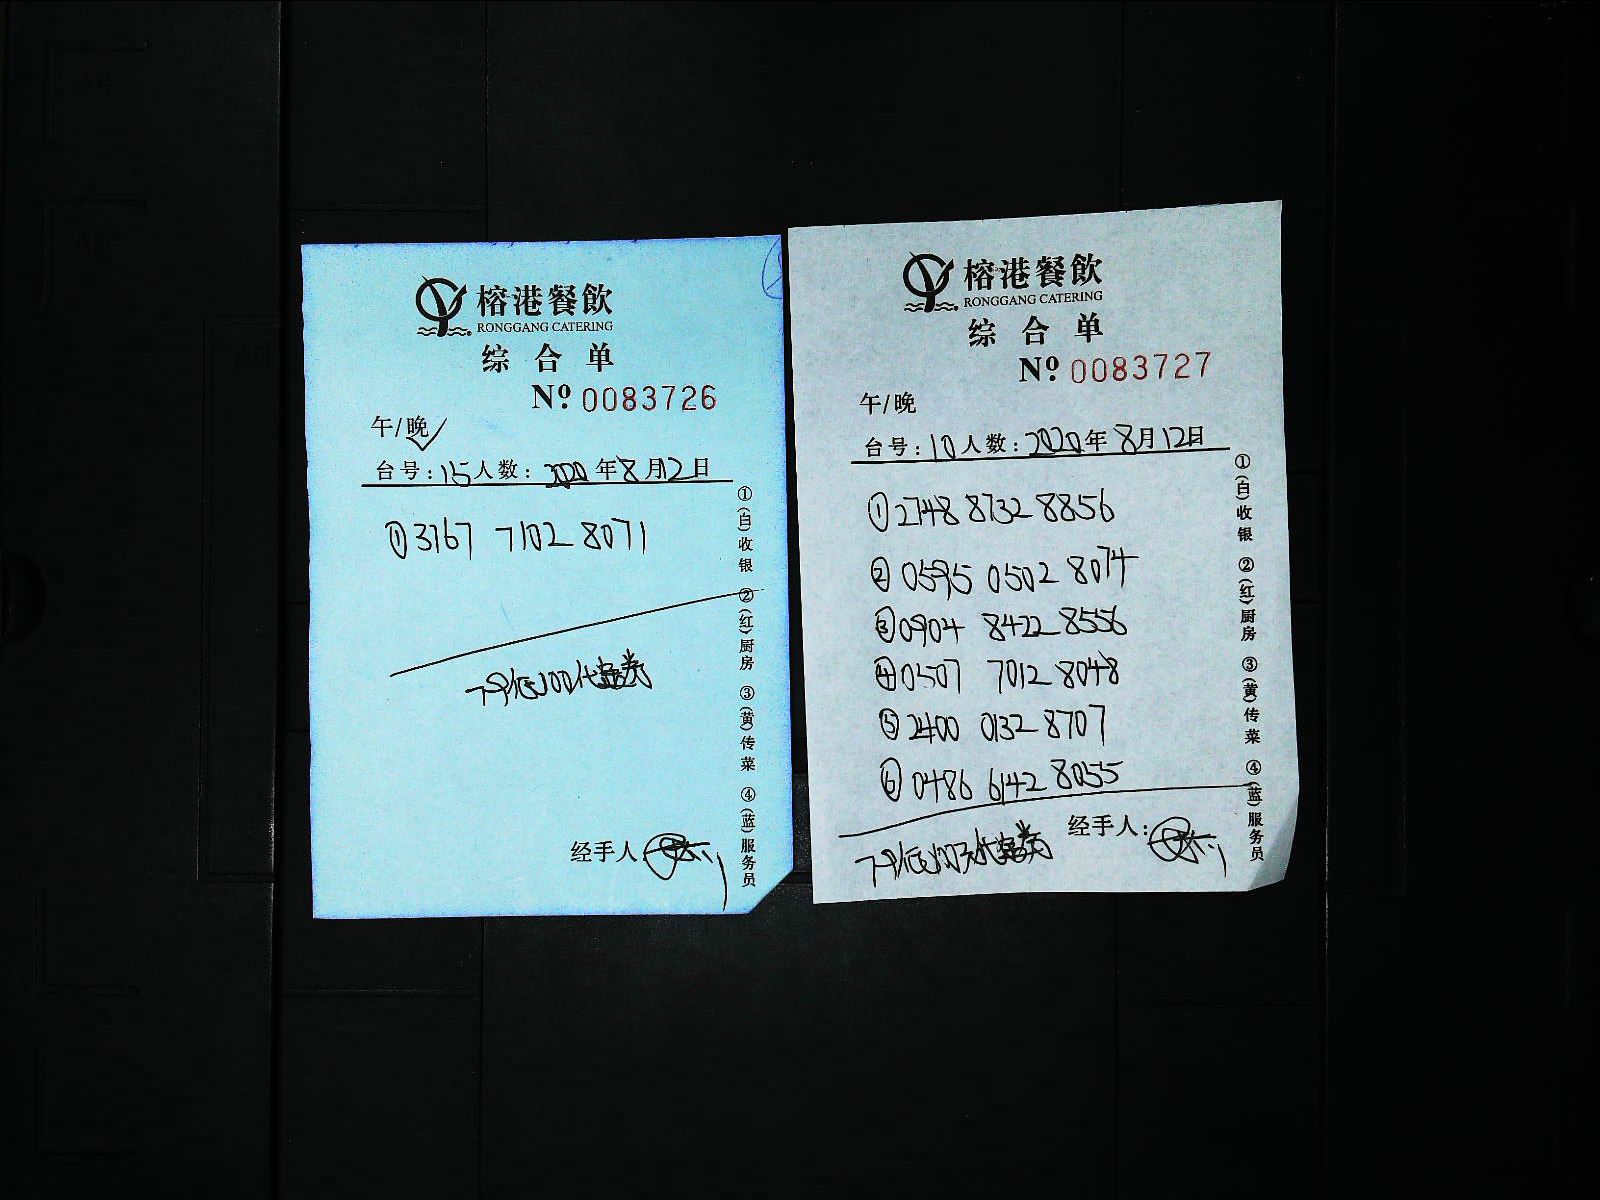 榕港餐飲
RONGGANG CATERING
综合单
Nº 0083726
午/晚
台号:15人数: 2020年8月12日
①3167 7102 8071
经手人
①(白)收银 ②(红)厨房 ③(黄)传菜 ④(蓝)服务员
榕港餐飲
RONGGANG CATERING
综合单
Nº 0083727
午/晚
台号:10人数:2020年8月12日
①2748 8732 8856
②0595 0502 8074
③0904 8422 8556
④0507 7012 8048
⑤2400 0132 8707
⑥0486 6142 8055
经手人:
①(白)收银 ②(红)厨房 ③(黄)传菜 ④(蓝)服务员